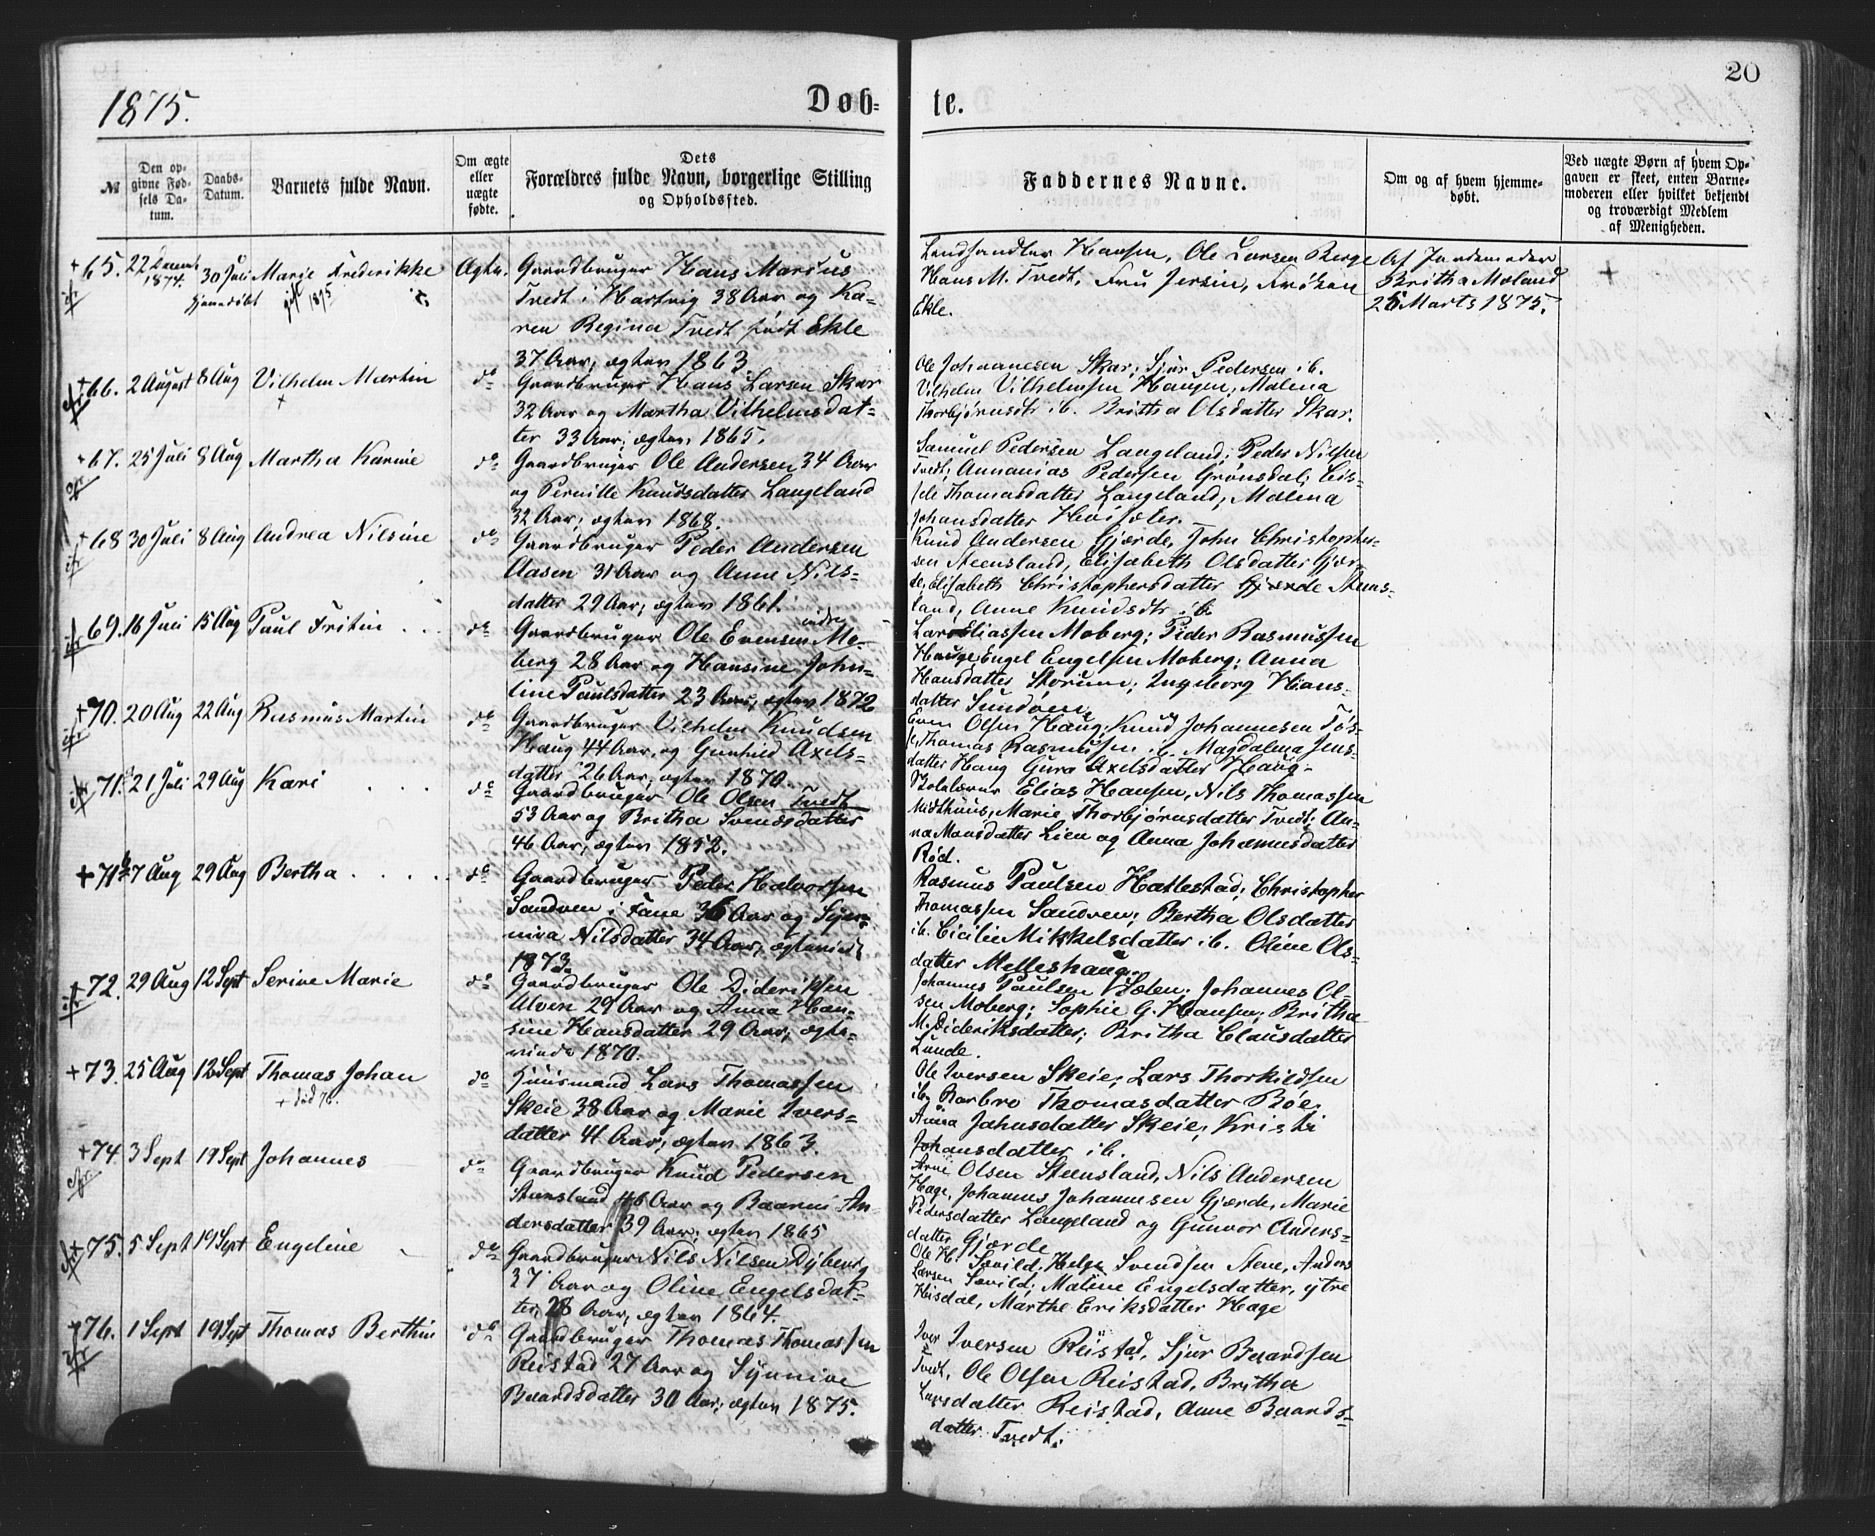 20
1875.
Døb-
te.
№
Den op-
givne Fød-
sels Da-
tum.
Daabs-
Datum.
Barnets fulde Navn.
Om ægte
eller
uægte
fødte.
Dets
Forældres fulde Navn, borgerlige Stilling
og Opholdssted.
Faddernes Navne.
Om og af hvem hjemme-
døbt.
Ved uægte Børn af hvem Op-
gaven er skeet, enten Barne-
moderen eller hvilket bekjendt
og troværdigt Medlem
af Menigheden.
65. 30 Juli Marie Frederikke Ægte.
1874.
hjemdøbt
Gaardbruger Hans Marius
Tvedt i Hartvig 38 Aar og Ka-
ren Regina Tvedt født Ekle
37 Aar, ægtev 1863.
Landhandler Hansen, Ole Larsen Berge
Hans M. Tvedt, Fru Jersin, Frøken
Ekle.
Af Jordemoder
Britha Moland
Marts 1875.
66. 2 August 8 Aug Vilhelm Martin do
Gaardbruger Hans Larsen Skar
32 Aar og Martha Vilhelmsdat-
ter 33 Aar, ægtev 1865.
Ole Johannesen Skar, Sjur Pedersen ib.
Vilhelm Vilhelmsen Haugen, Malena
Thorbjørnsdtr ib. Britha Olsdatter Skar.
67. 25 Juli 8 Aug Martha Karine do
Gaardbruger Ole Andersen 34 Aar
og Pernille Knudsdatter Langeland
32 Aar, ægtev 1868.
Samuel Pedersen Langeland, Peder Nilsen
Tvedt, Annanias Pedersen Grønsdal,
Thomasdatter Langeland, Malena
Johansdatter
68 30 Juli 8 Aug Andrea Nilsine do
Gaardbruger Peder Andersen
Aasen 31 Aar og Anne Nils-
datter 29 Aar, ægtev 1861.
Knud Andersen Gjerde, John Christopher-
sen Steensland, Elisabeth Olsdatter Gjær-
de, Elisabeth Christophersdatter Steens-
land, Anne Knudsdtr ib.
69. 16 Juli 15 Aug Paul Fritin do
Gaardbruger Ole Evensen indre Mo-
berg 28 Aar og Hansine John-
line Paulsdatter 23 Aar, ægtev 1872
Lars Eliassen Moberg, Peder Rasmussen
Hauge, Engel Engelsen Moberg, Anna
Hansdatter Storum, Ingeborg Hans-
datter Sundøen
70. 20 Aug 22 Aug Rasmus Martin do
Gaardbruger Vilhelm Knudsen
Haug 44 Aar, og Gunhild Axels-
datter 26 Aar, ægtev 1870.
Even Olsen Haug, Knud Johannesen
Thomas Rasmussen ib. Magdalena Jens-
datter Haug Guro Axelsdatter Haug.
71. 21 Juli 29 Aug Kari do
Gaardbruger Ole Olsen Tvedt
53 Aar og Britha Svendsdatter
46 Aar, ægtev 1852.
Elias Hansen, Nils Thomassen
Midthuus, Marie Thorbjørnsdatter Tvedt, An-
na Monsdatter Lien og Anna Johannesdatter
Rød.
71b 7 Aug 29 Aug Bertha do
Gaardbruger Peder Halvorsen
Sandven i Fane 36 Aar og Syn-
niva Nilsdatter 34 Aar, ægteviet
1873.
Rasmus Paulsen Hatlestad, Christopher
Thomassen Sandven, Bertha Olsdatter
ib. Cicilie Mikkelsdatter ib. Oline Ols-
datter Melleshaug.
72. 29 Aug 12 Sept Serine Marie do
Gaardbruger Ole Dideriksen
Ulven 29 Aar og Anna Han-
sine Hansdatter 29 Aar, ægte-
viede 1870.
Johannes Paulsen Sælen, Johannes Ol-
sen Moberg, Sophie G. Hansen, Britha
M. Dideriksdatter, Britha Clausdatter
Lunde.
73. 25 Aug 12 Sept Thomas Johan do
Huusmand Lars Thomassen
Skeie 38 Aar og Marie Ivers-
datter 41 Aar, ægtev 1863.
Ole Iversen Skeie, Lars Thorkildsen
ib. Barbro Thomasdatter Røe,
Anna Jahnsdatter Skeie, Kristi
Johansdatter ib.
74. 3 Sept 19 Sept Johannes do
Gaardbruger Knud Pedersen
Steensland 46 Aar og Baarni An-
dersdatter 39 Aar, ægtev 1865
Arne Olsen Steensland, Nils Andersen
Hage, Johannes Johannesen Gjærde, Marie
Pedersdatter Langeland og Gunvor Anders-
datter Gjærde
75. 5 Sept 19 Sept Engeline do
Gaardbruger Nils Nilsen Dyberg
37 Aar og Oline Engelsdat-
ter 28 Aar, ægtev 1864.
Ole H. Søvild, Helge Svendsen Stene, Anders
Larsen Søvild, Maline Engelsdatter, ytre
Heisdal, Marthe Eriksdatter Hage
76. 1 Sept 19 Sept Thomas Berthin do
Gaardbruger Thomas Thomassen
Reistad 27 Aar og Synnive
Baardsdatter 30 Aar, ægtev 1875.
Iver Iversen Reistad, Sjur Baardsen
Tvedt, Ole Olsen Reistad, Britha
Larsdatter Reistad, Anne Baards-
datter Tvedt.